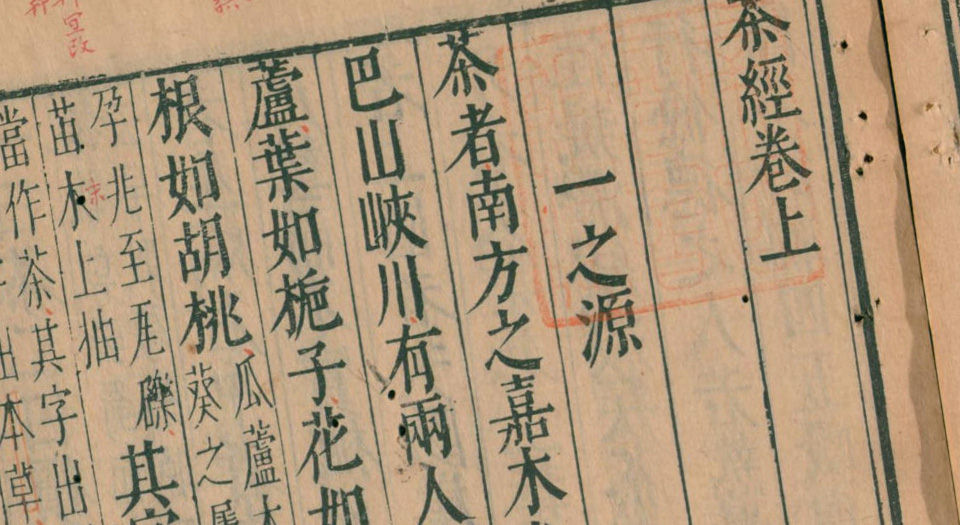 茶經卷上
一之源
茶者南方之嘉木
巴山峽川有兩人
蘆葉如栀子花如
根如胡桃
瓜蘆木
葵之
孕兆至瓦礫
苗木上抽
其字
當作茶其字出
出本草